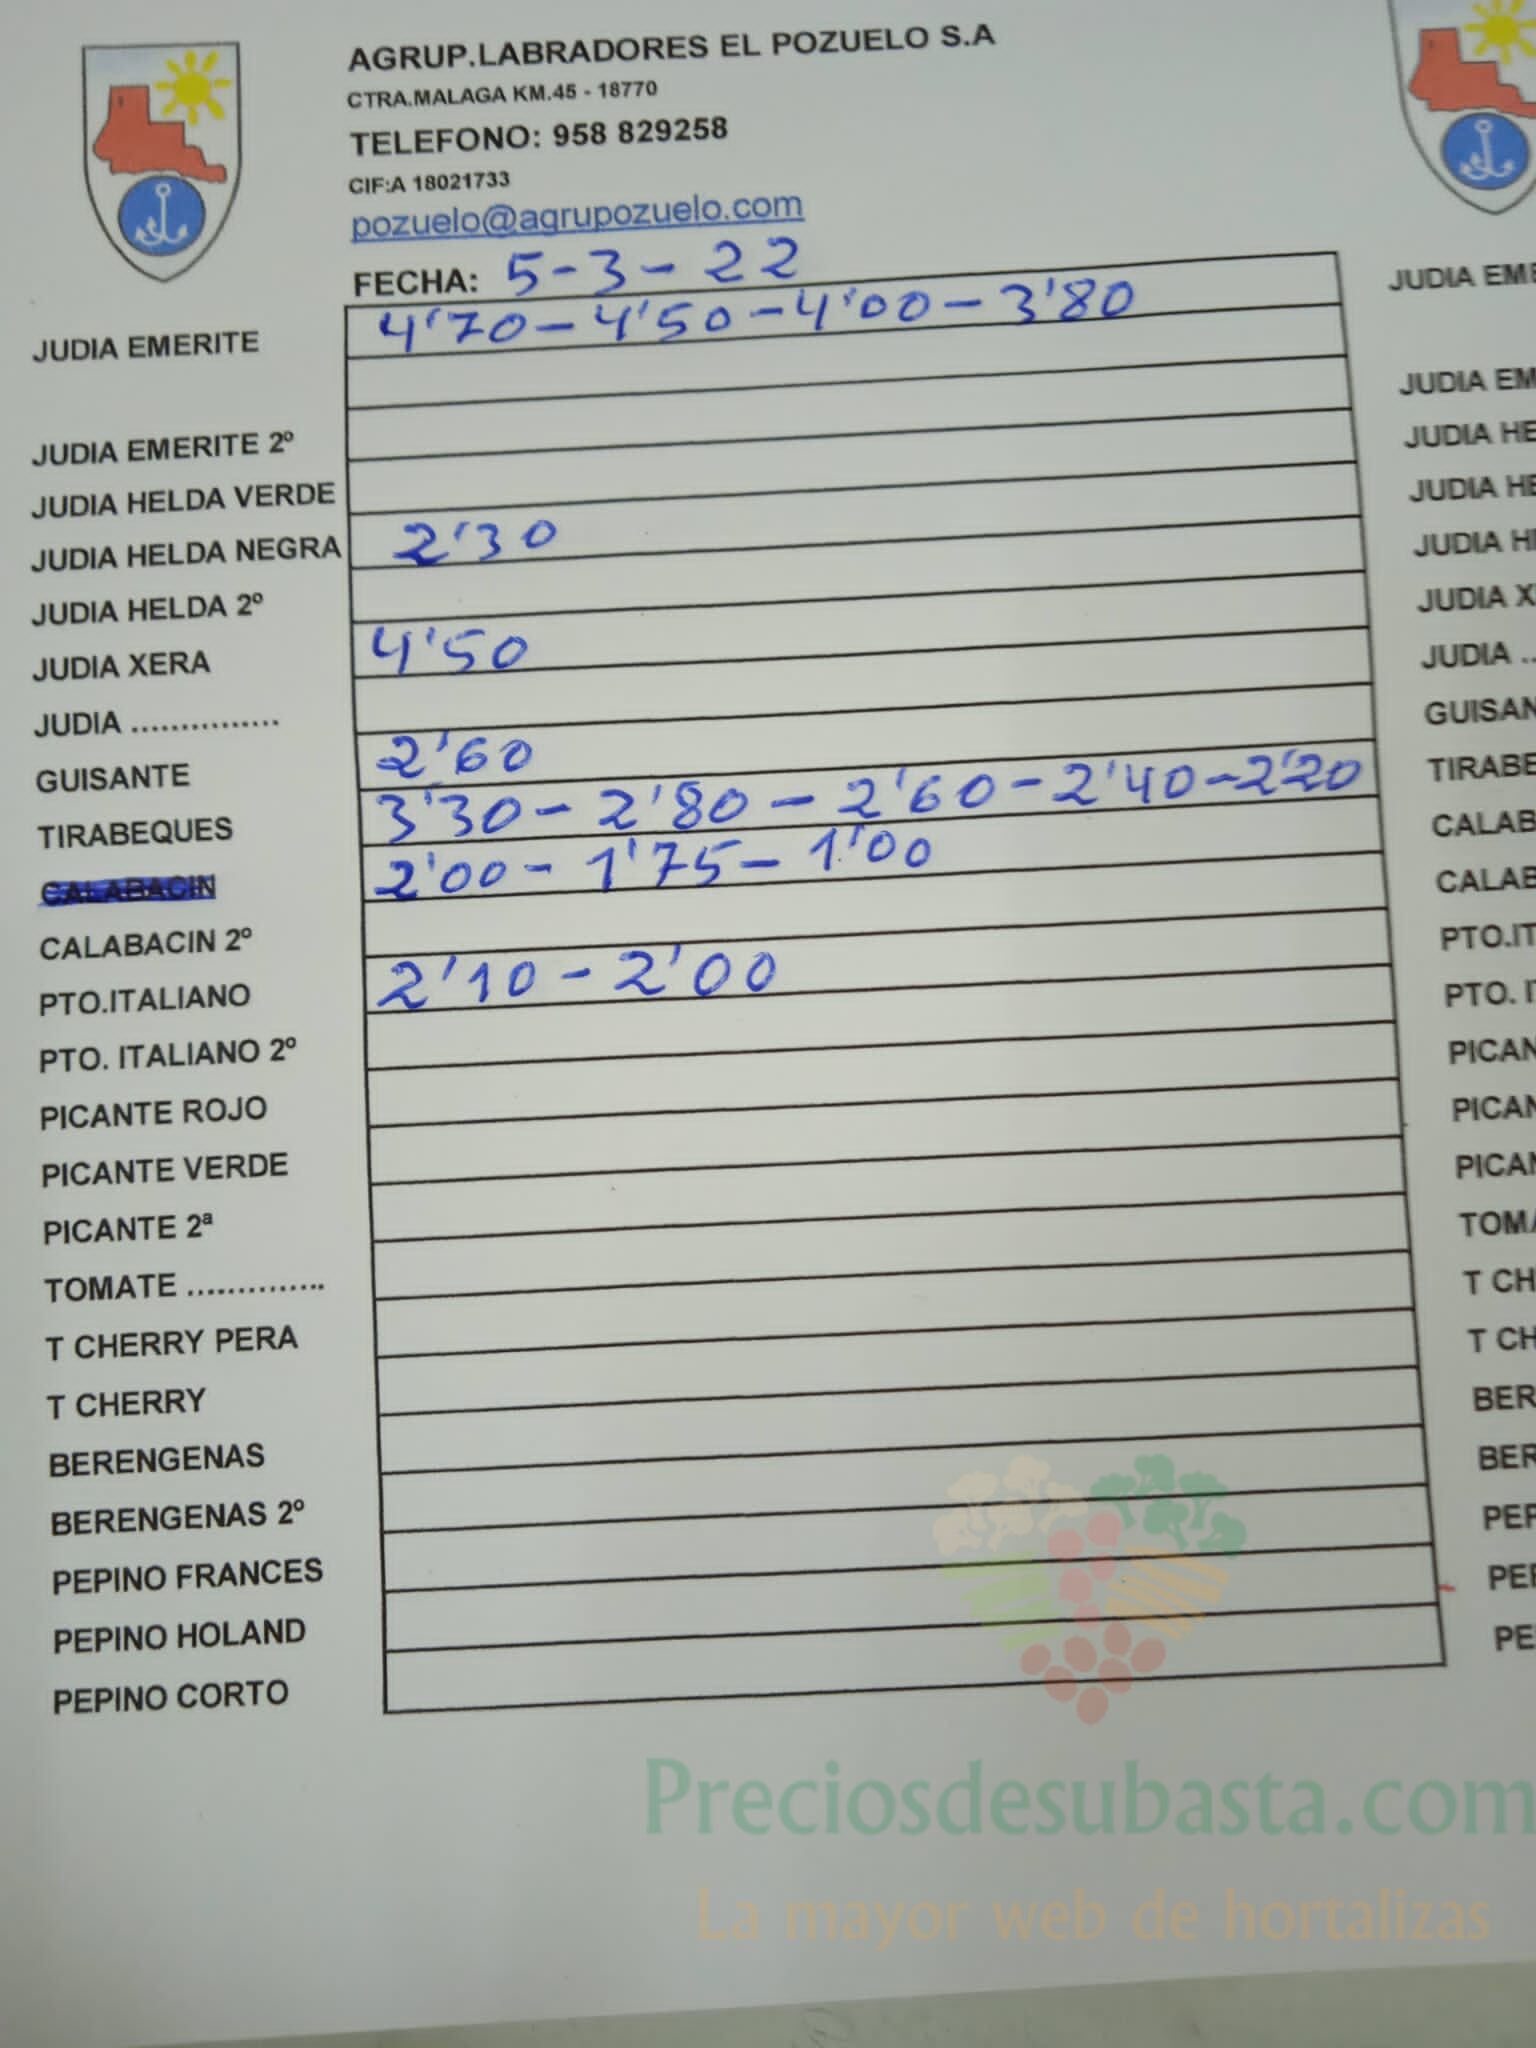 AGRUP.LABRADORES EL POZUELO S.A
CTRA.MALAGA KM.45 - 18770
TELEFONO: 958 829258
CIF:A 18021733
pozuelo@agrupozuelo.com
FECHA: 5-3-22
JUDIA EMERITE 4'70-4'50-4'00-3'80
JUDIA EMERITE 2º
JUDIA HELDA VERDE
JUDIA HELDA NEGRA 2'30
JUDIA HELDA 2º
JUDIA XERA 4'50
JUDIA ...............
GUISANTE 2'60
TIRABEQUES 3'30-2'80-2'60-2'40-2'20
CALABACIN 2'00-1'75-1'00
CALABACIN 2º
PTO.ITALIANO 2'10-2'00
PTO. ITALIANO 2º
PICANTE ROJO
PICANTE VERDE
PICANTE 2ª
TOMATE ..............
T CHERRY PERA
T CHERRY
BERENGENAS
BERENGENAS 2º
PEPINO FRANCES
PEPINO HOLAND
PEPINO CORTO
JUDIA EME
JUDIA EM
JUDIA HE
JUDIA HE
JUDIA H
JUDIA X
JUDIA ..
GUISAN
TIRABE
CALAB
CALAB
PTO.IT
PTO. I
PICAN
PICAN
PICAN
TOMA
T CH
T CH
BER
BER
PEP
PEP
PE
Preciosdesubasta.com
La mayor web de hortalizas